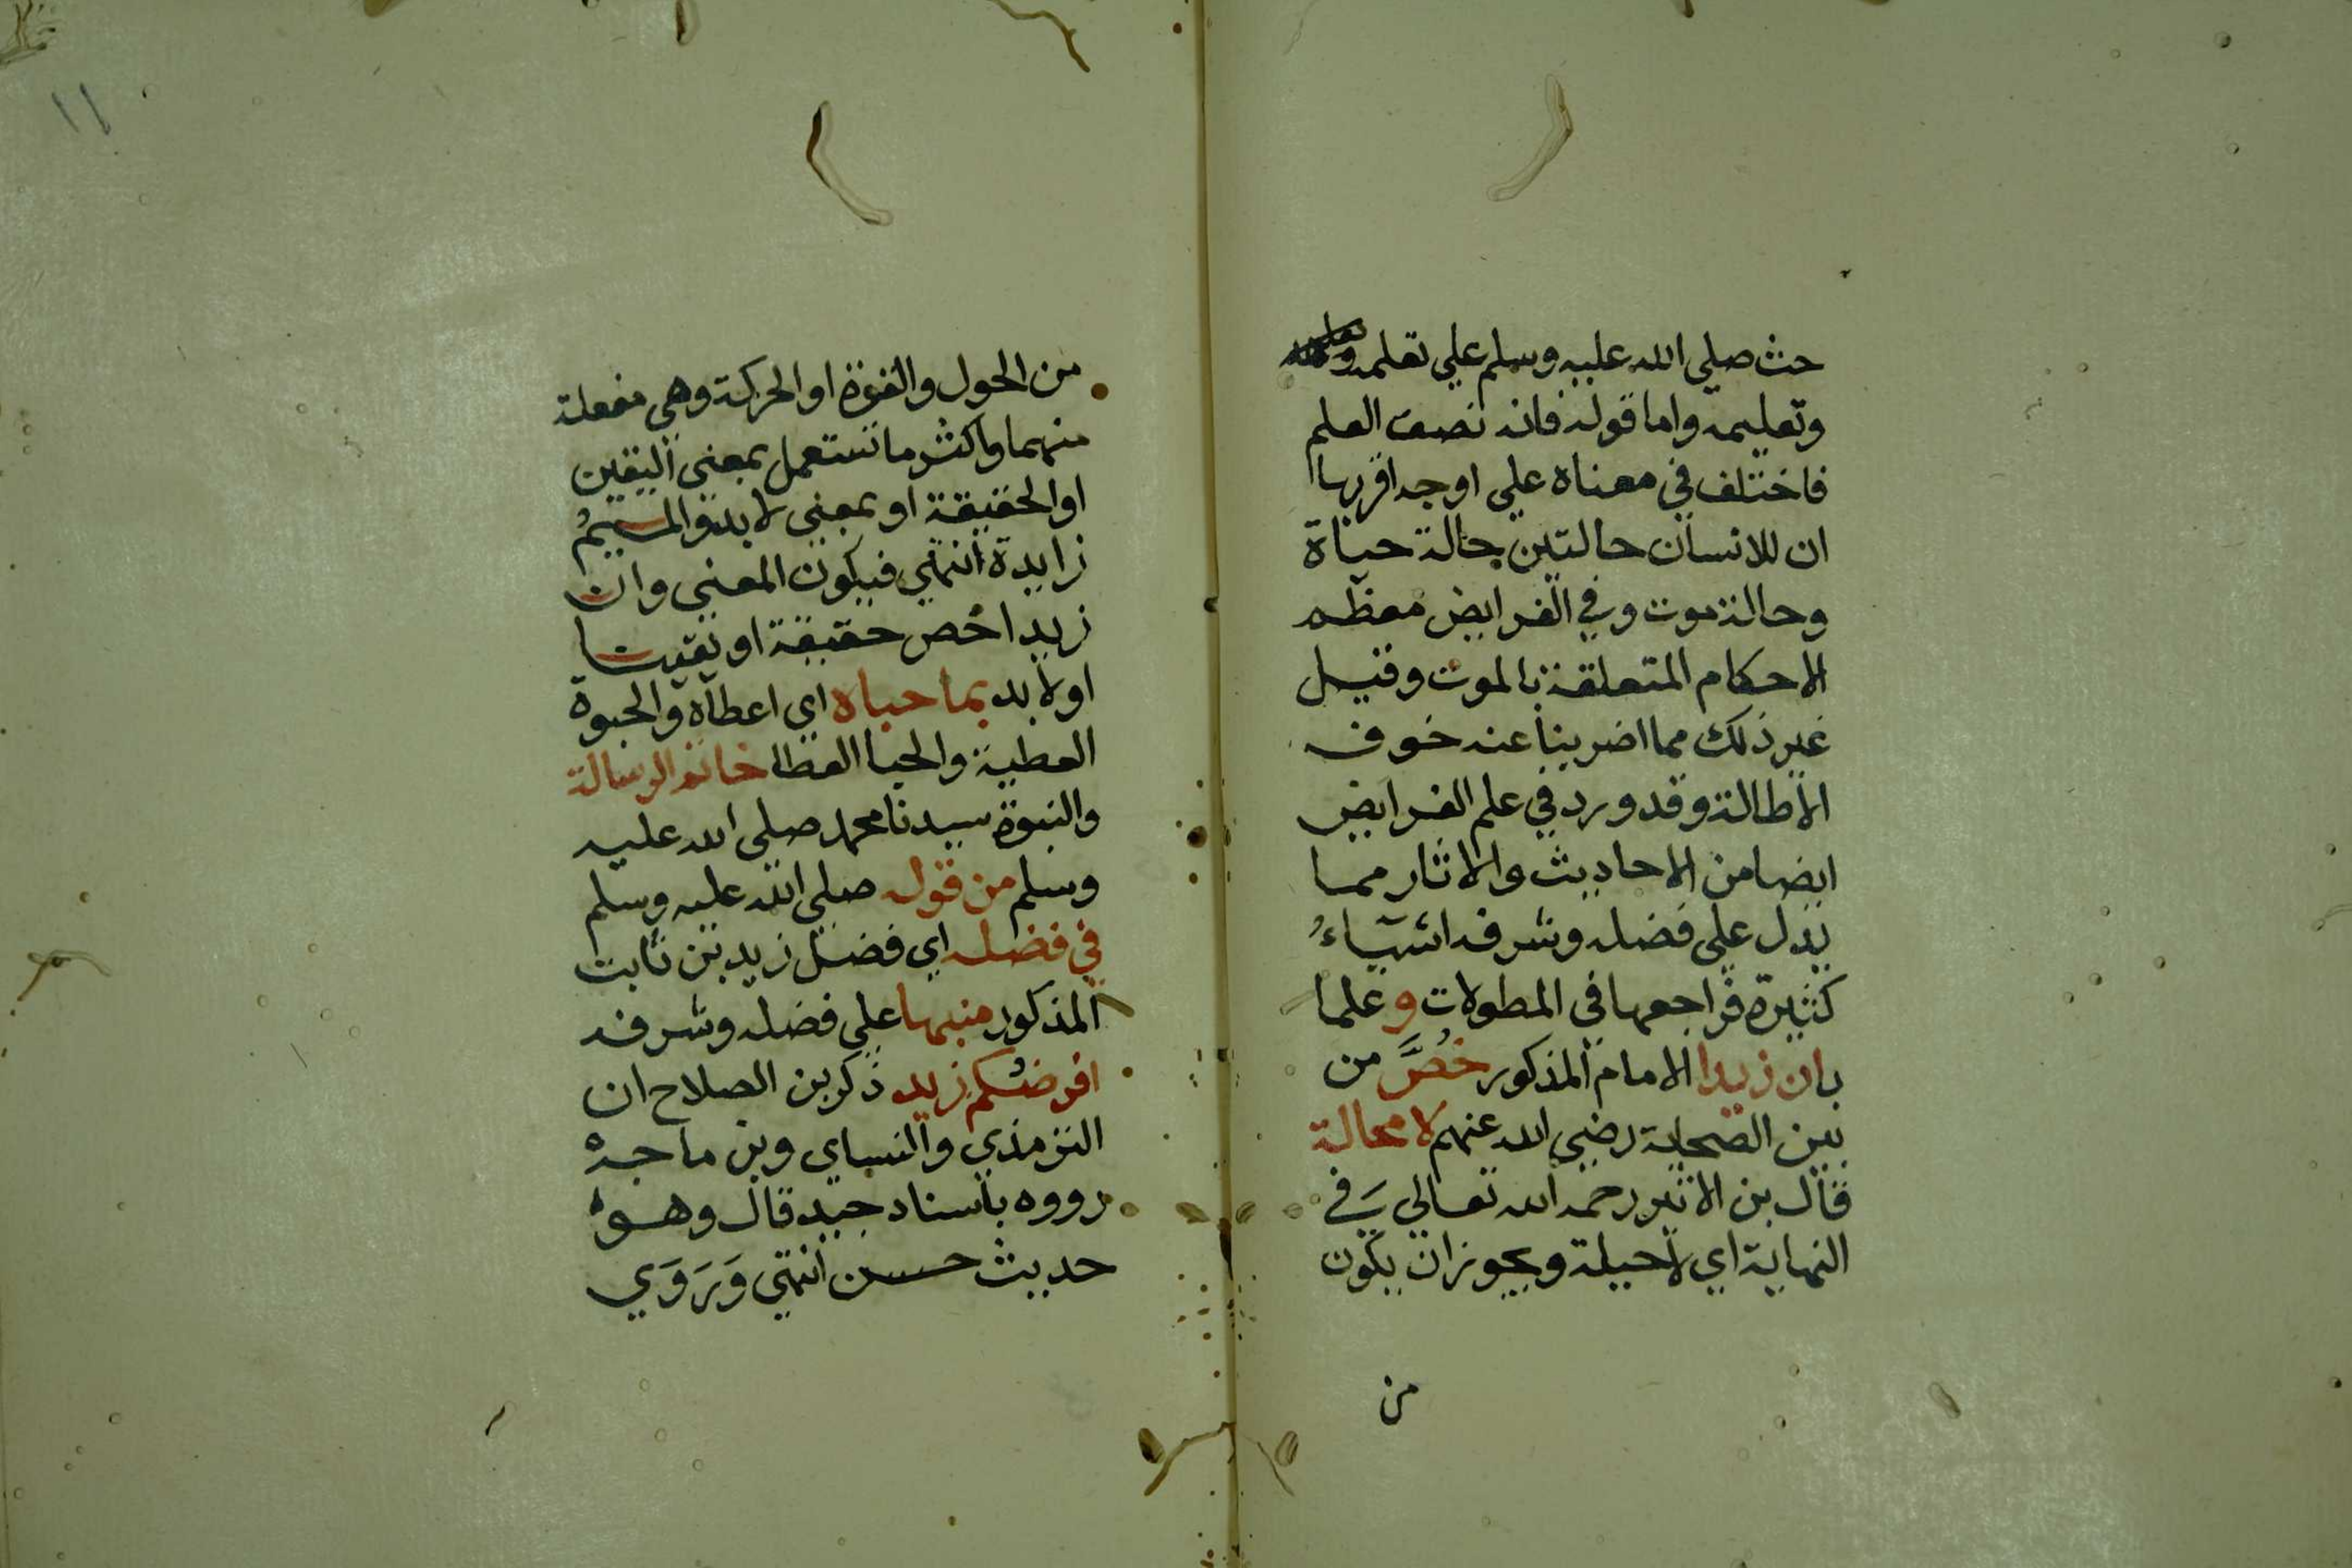 حث صلي الله عليه وسلم علي تعلمه
وتعليمه واما قوله فانه نصف العلم
فاختلف في معناه علي اوجه اقربها
ان للانسان حالتين حالة حياة
وحالة موت وفي الفرايض معظم
الاحكام المتعلقة بالموت وقيل
غير ذلك مما اضربنا عنه خوف
الاطالة وقد ورد في علم الفرايض
ايضا من الاحاديث والاثار مما
يدل علي فضله وشرفه اشياءُ
كثيرة فراجعها في المطولات و علما
بان زيدا الامام المذكور خُصَّ من
بين الصحابة رضي الله عنهم لا محالة
قال بن الاثير رحمه الله تعالي في
النهاية اي لا حيلة ويجوز ان يكون
من
١١
من الحول والقوة او الحركة وهي مفعلة
منهما واكثر ما تستعمل بمعني اليقين
او الحقيقة او بمعني لا بد والميم
زايدة انتهي فيكون المعني وان
زيدا خص حقيقة او يقينا
او لا بد بما حباه اي اعطاه والحبوة
العطية والحبا العطا خاتم الرسالة
والنبوة سيدنا محمد صلي الله عليه
وسلم من قوله صلي الله عليه وسلم
في فضله اي فضل زيد بن ثابت
المذكور منبها علي فضله وشرفه
افرضكم زيد ذكر بن الصلاح ان
الترمذي والنساي وبن ماجه
رووه باسناد جيد قال وهو
حديث حسن انتهي وَرَوَي